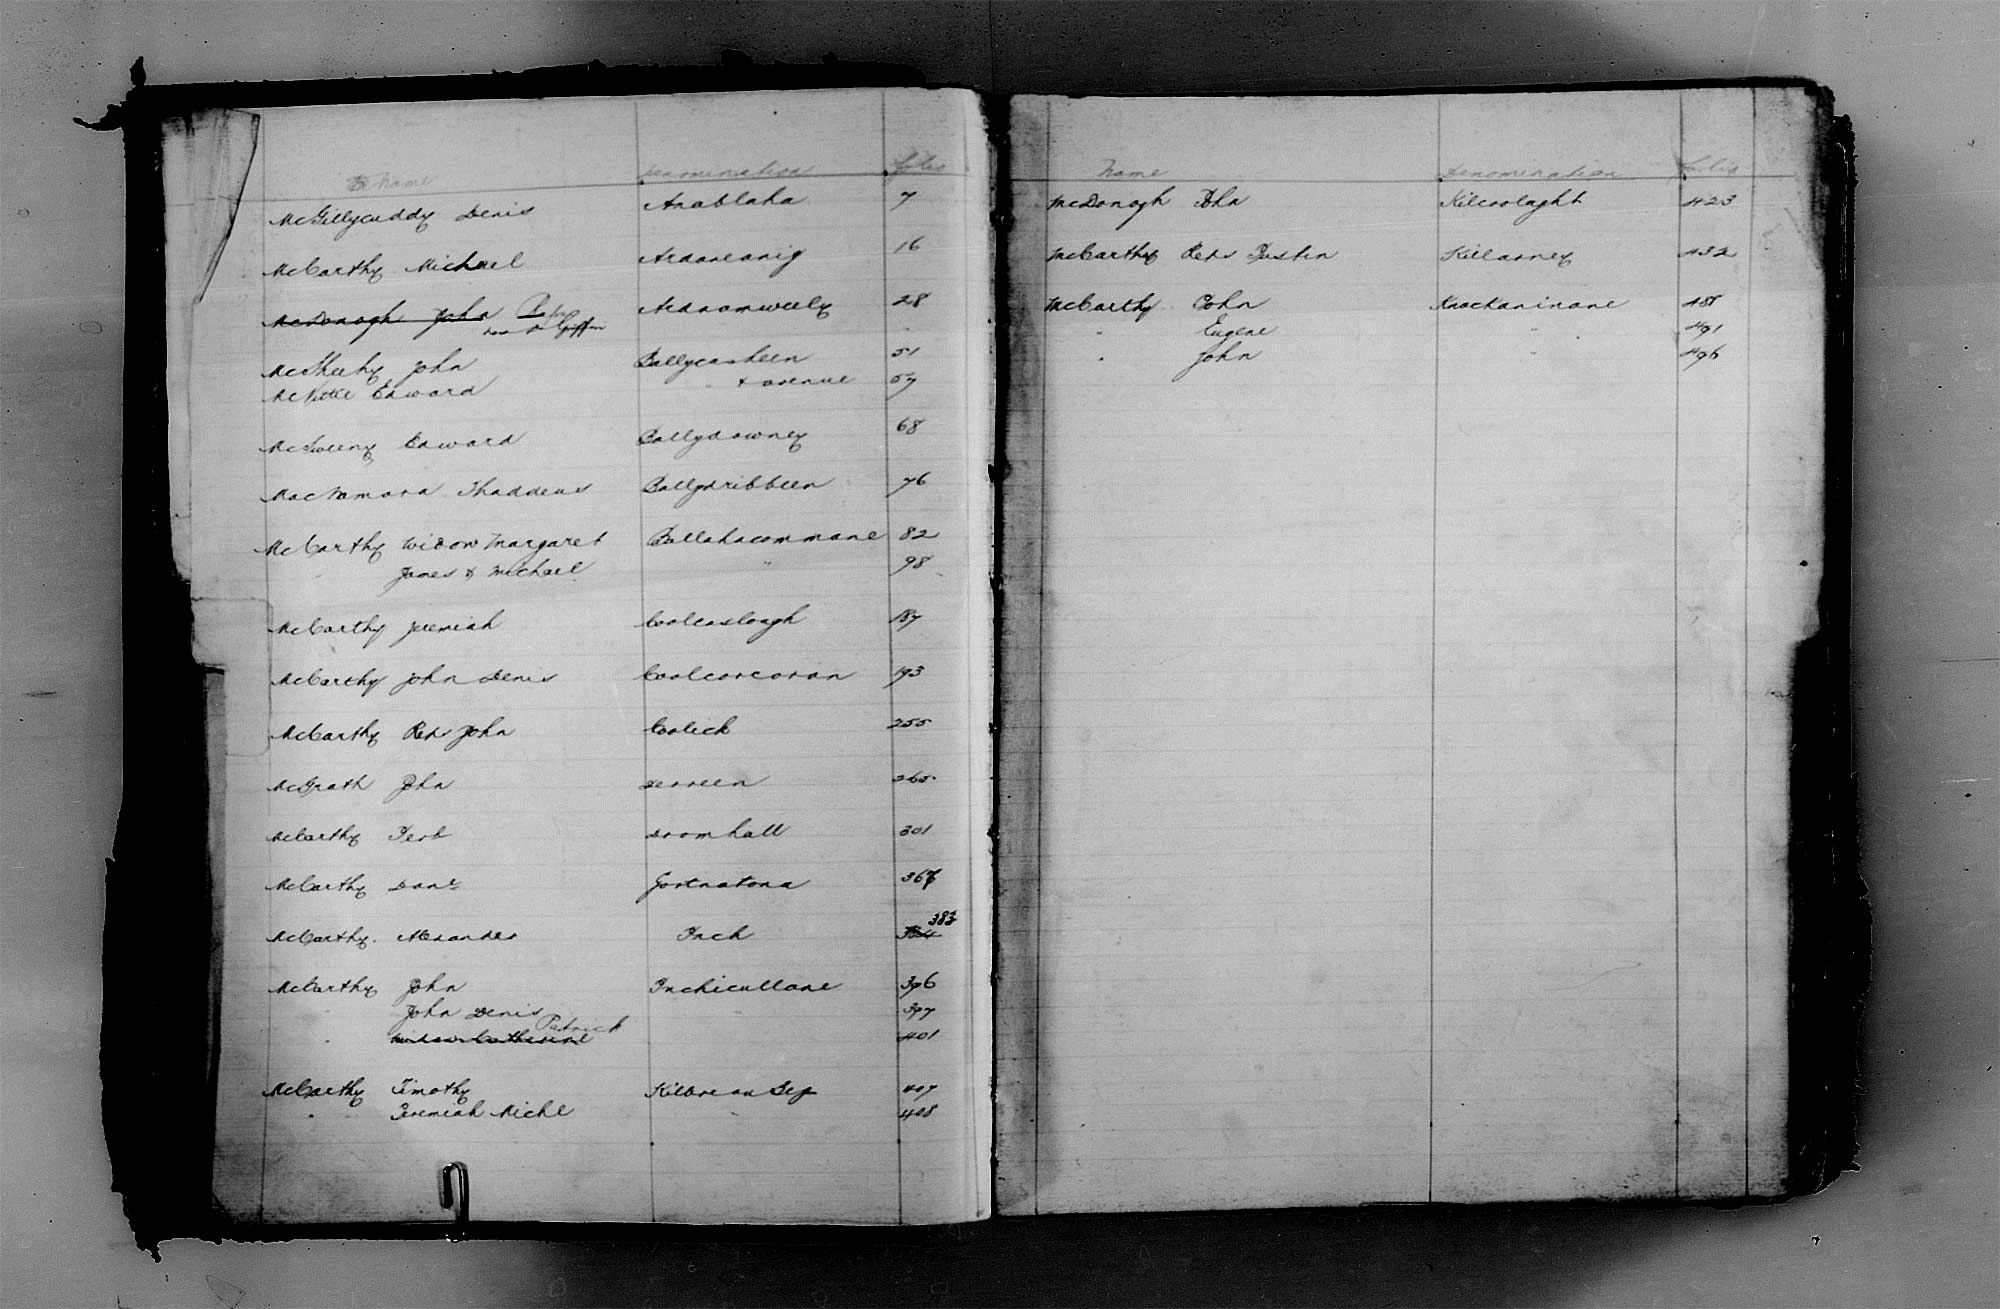 Name Denomination folio
McGillycuddy Denis Anablaha 7
McCarthy Michael Ardaneanig 16
McDonogh John Ardnamweely 28
now Griffin
McSheehy John Ballycasheen 51
Edward " & avenue 57
McSweeny Edward Ballydowney 68
MacNamara Thaddeus Ballydribbeen 76
McCarthy Widow Margaret Ballahacommane 82
" James & Michael " 98
McCarthy Jeremiah Coolcaslough 187
McCarthy John Denis Coolcorcoran 193
McCarthy Reps John Coolick 255
McGrath John Derreen 265
McCarthy Jerh Dromhall 301
McCarthy Danl Gortnatona 367
383
McCarthy Alexander Inch
McCarthy John Inchicullane 396
John Denis 397
Patrick
" Widow Catherine 401
McCarthy Timothy Kilbrean Beg 407
" " Jeremiah Michl " 408
Name Denomination folio
McDonogh John Kilcoolaght 423
McCarthy Reps Justin Killarney 432
McCarthy John Knockaninane 488
" Eugene " " 491
" John 496